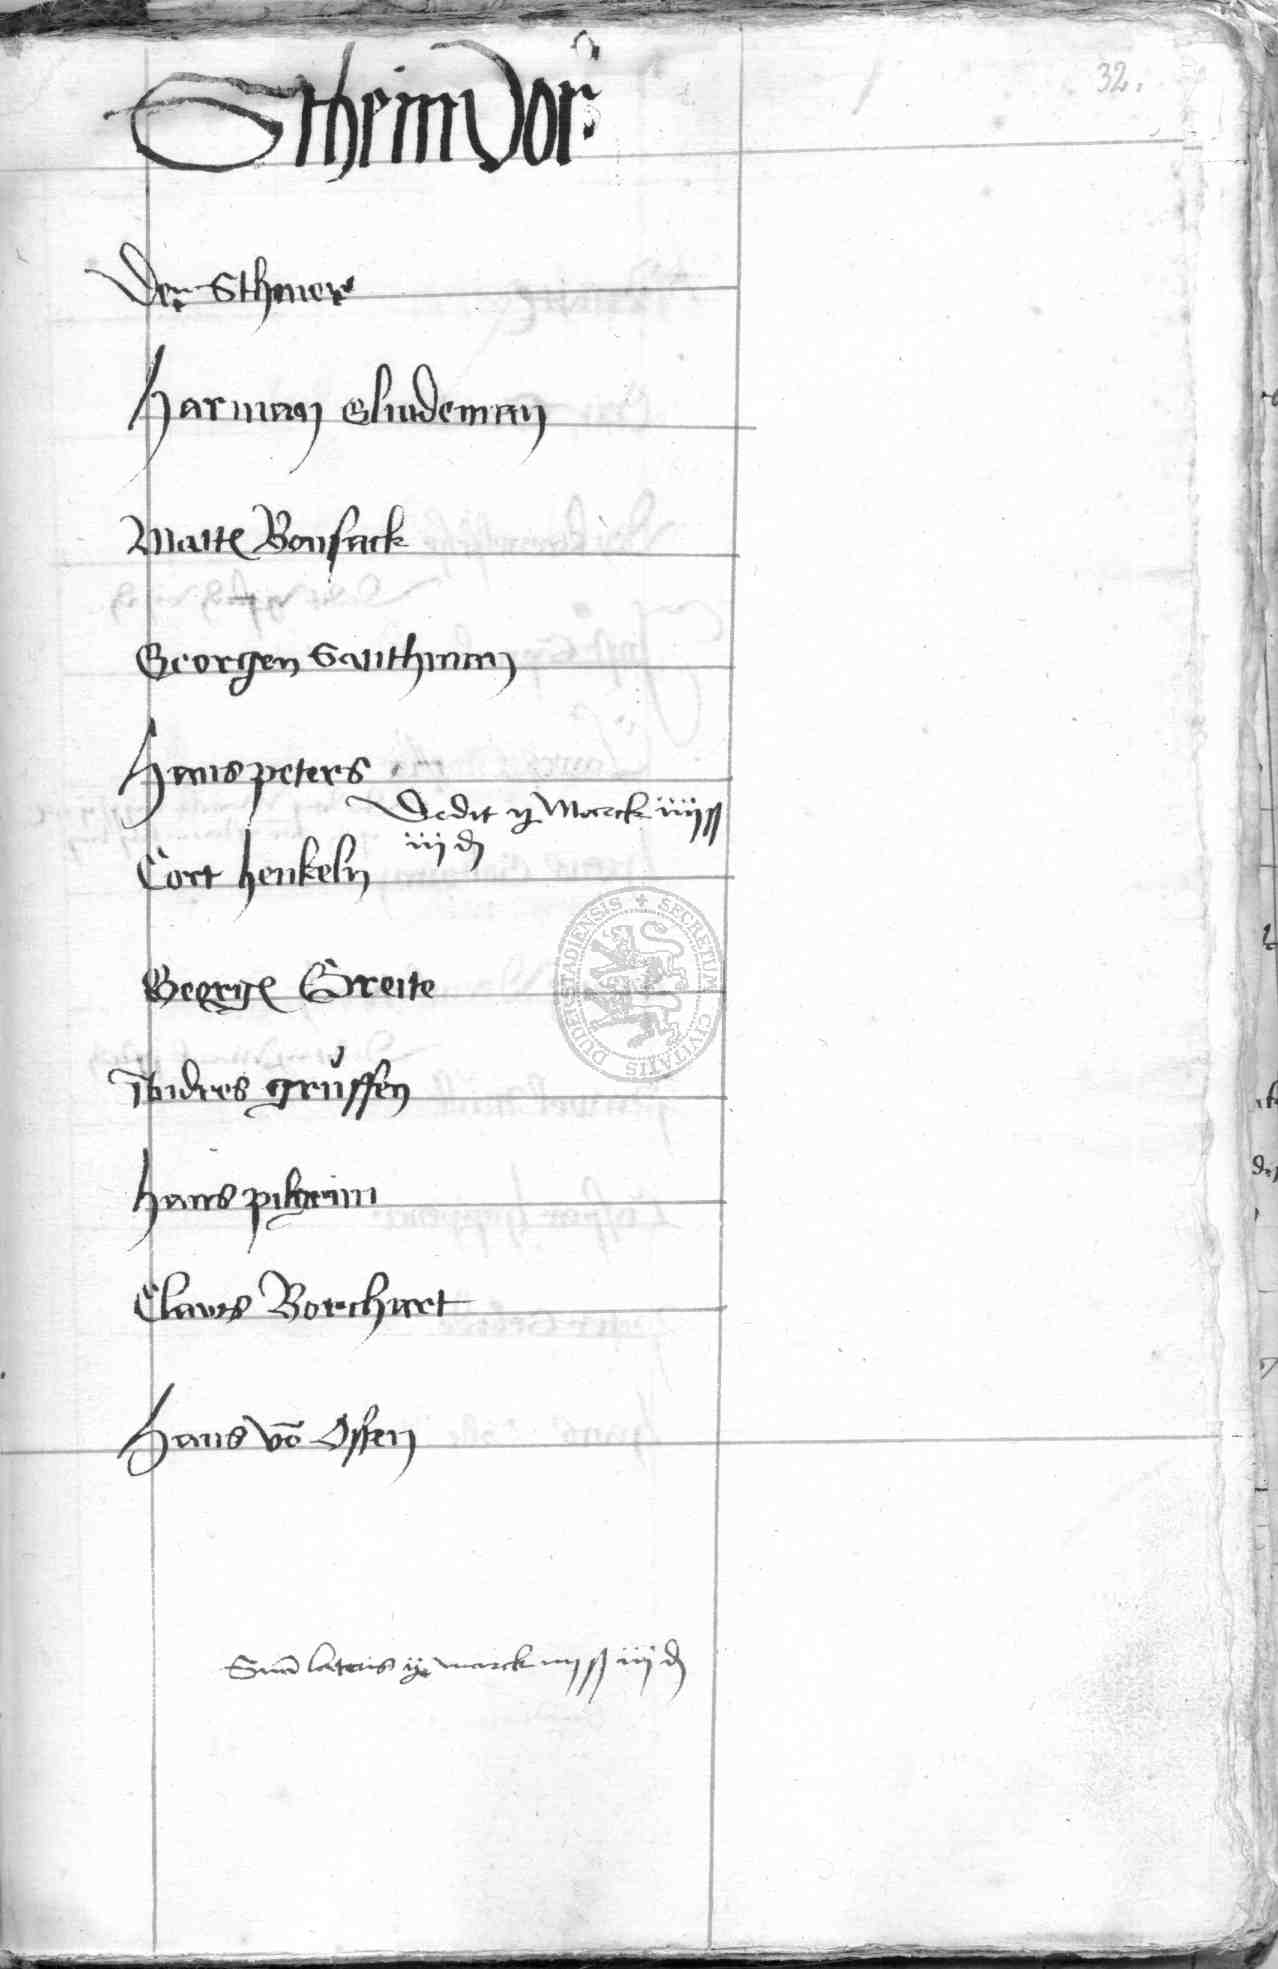 32.
Stheindor
Der Sthmer
Harman Gludeman
Matte Bonsack
Georgen Santhman
Hans peters
Dedit ij Marck iiij ß
iij d
Cort Henkeln
George Greite
Andres grussen
Hans pilgrim
Claus Borchart
Hans vo Essen
Sum lateris ij marck iiij ß iij d
DUDERSTADIENSIS SECRETUM CIVITATIS